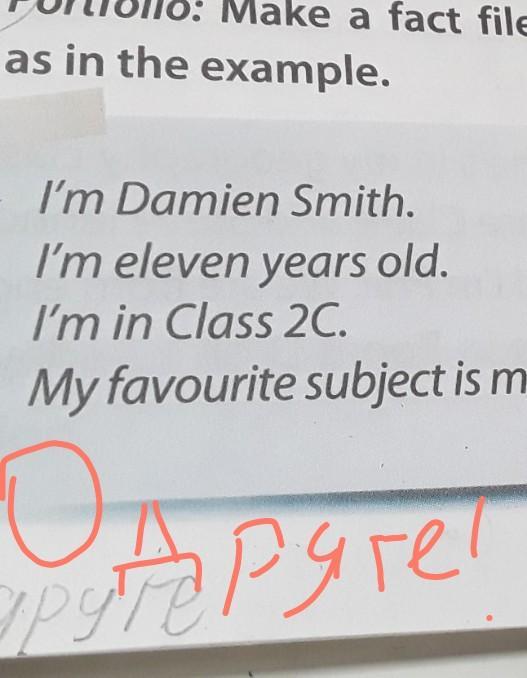 Portfolio: Make a fact file
as in the example.
I'm Damien Smith.
I'm eleven years old.
I'm in Class 2C.
My favourite subject is m
О друге!
друге